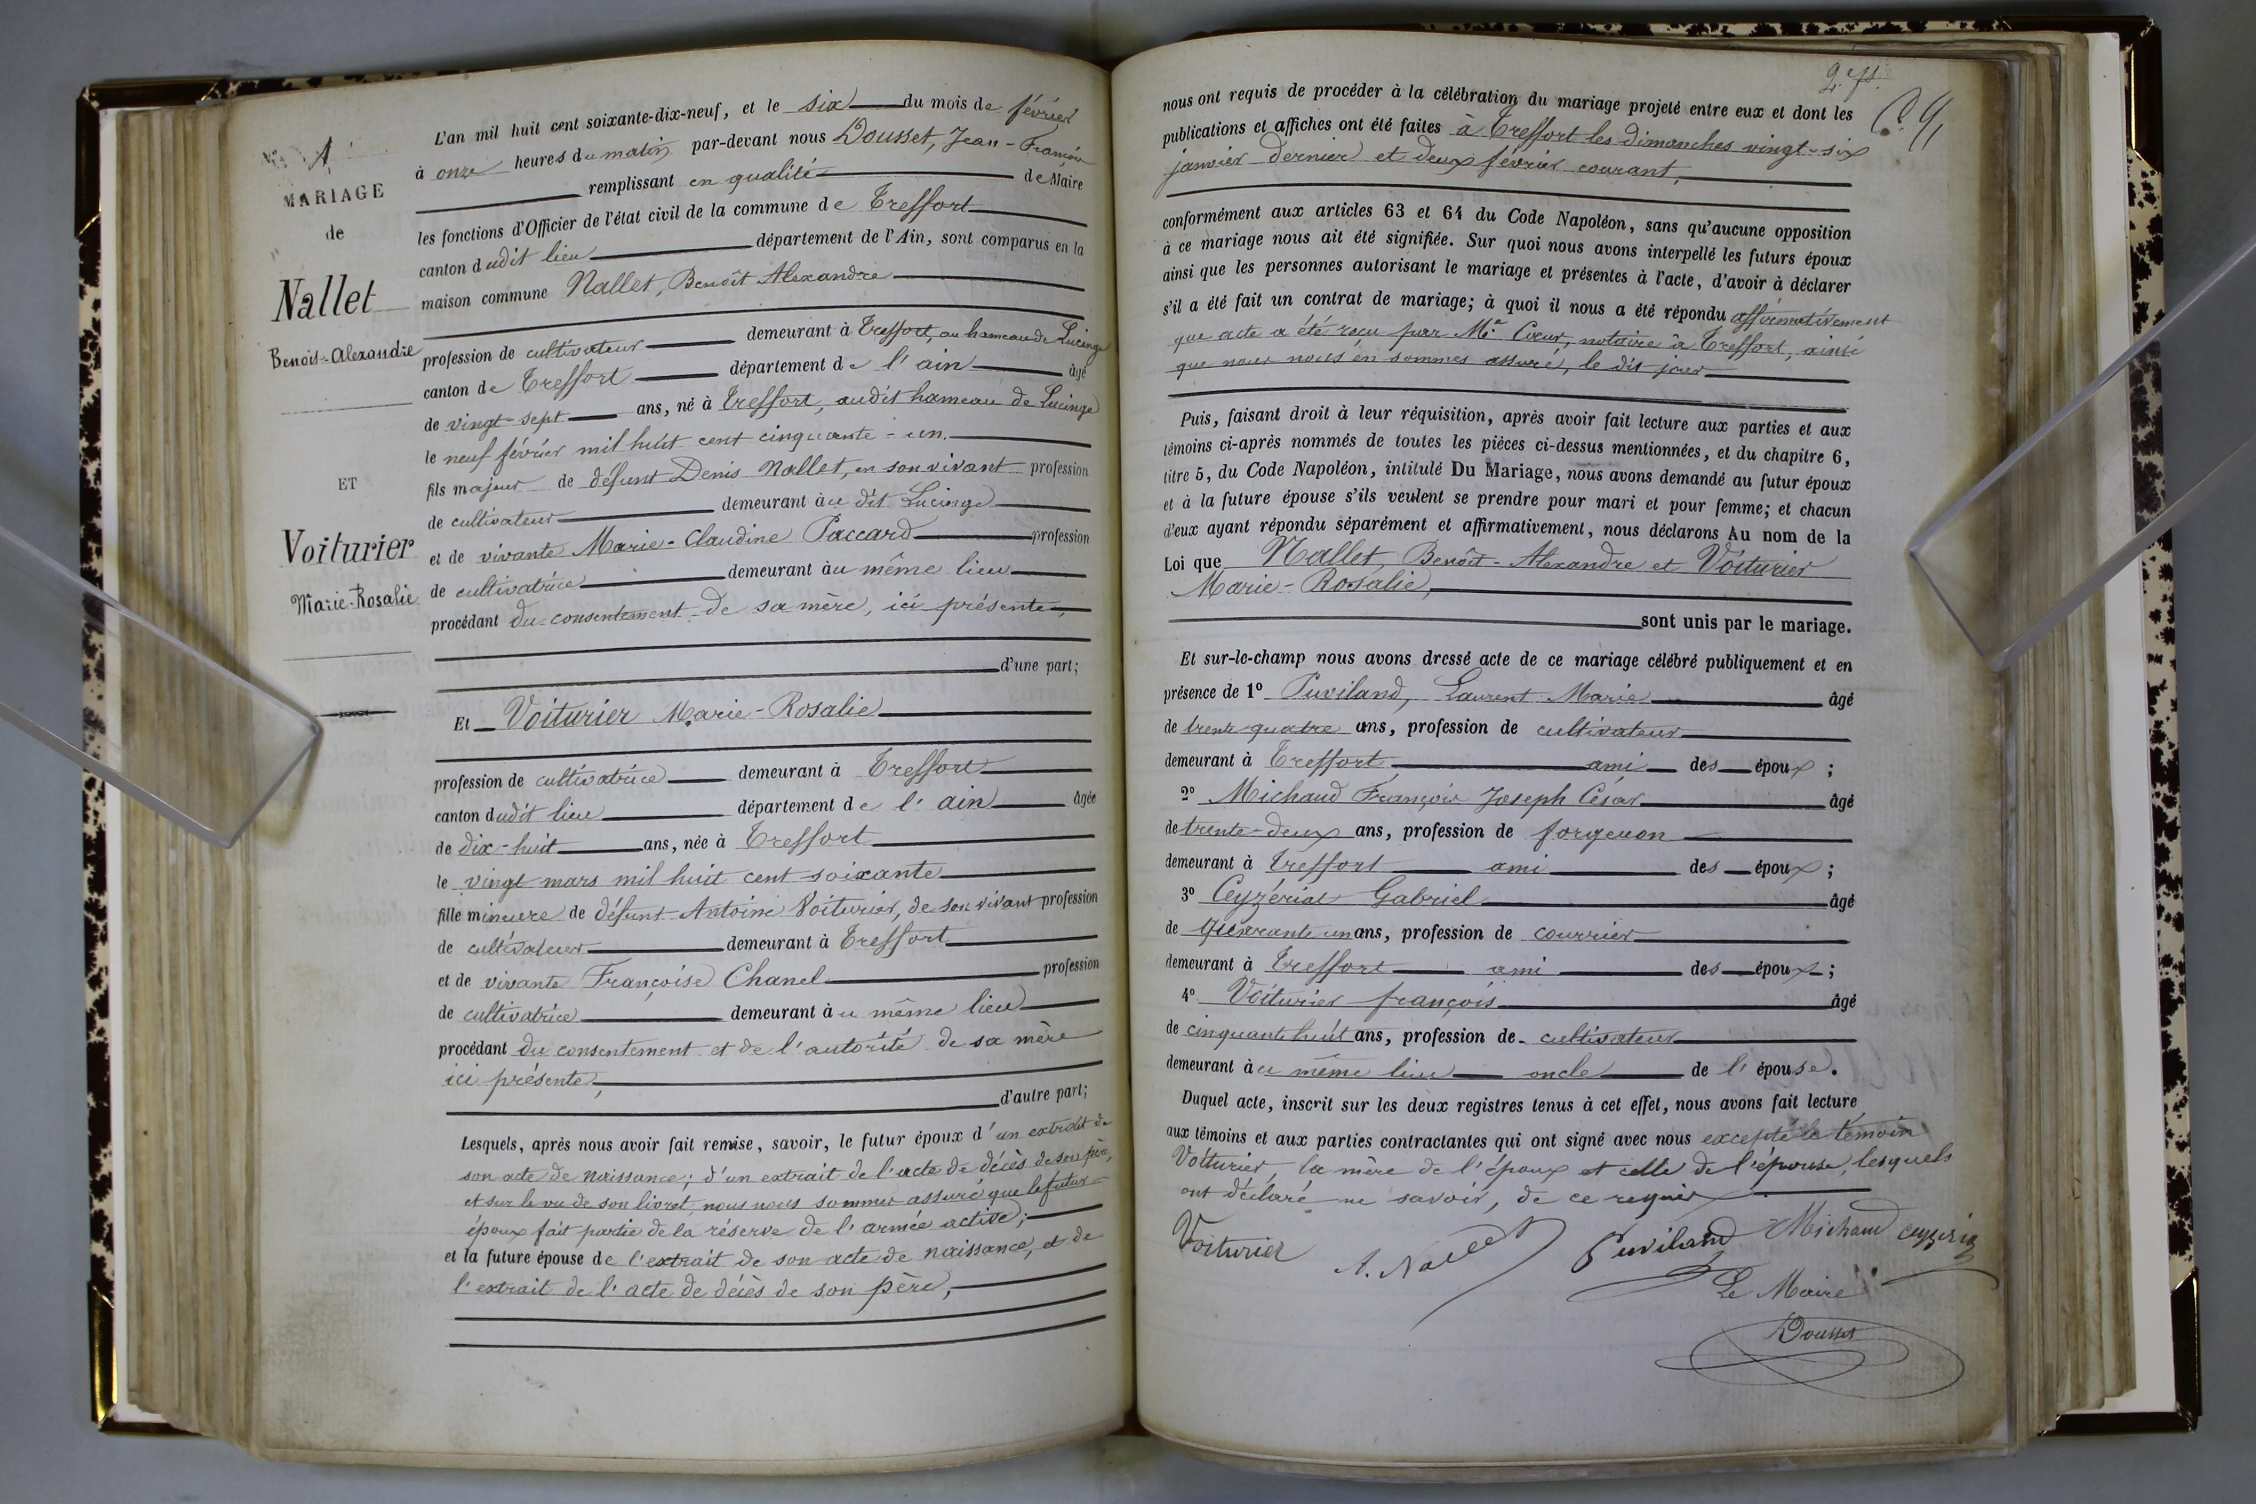 N° 1
MARIAGE
de
Nallet
Benoit-Alexandre
ET
Voiturier
Marie-Rosalie
L'an mil huit cent soixante-dix-neuf, et le six du mois de février
à onze heures du matin par-devant nous Dousset, Jean-François
remplissant en qualité de Maire
les fonctions d'Officier de l'état civil de la commune de Treffort
canton dudit lieu département de l'Ain, sont comparus en la
maison commune Nallet, Benoît Alexandre
profession de cultivateur demeurant à Treffort, au hameau de Lucinge
canton de Treffort département de l'ain âgé
de vingt-sept ans, né à Treffort, audit hameau de Lucinge
le neuf février mil huit cent cinquante-un.
fils majeur de défunt Denis Nallet, en son vivant profession
de cultivateur demeurant àu dit Lucinge
et de vivante Marie-Claudine Paccard profession
de cultivatrice demeurant àu même lieu
procédant du consentement de sa mère, ici présente,
d'une part;
Et Voiturier Marie-Rosalie
profession de cultivatrice demeurant à Treffort
canton dudit lieu département de l'ain âgée
de dix-huit ans, née à Treffort
le vingt mars mil huit cent soixante
fille mineure de défunt Antoine Voiturier, de son vivant profession
de cultivateur demeurant à Treffort
et de vivante Françoise Chanel profession
de cultivatrice demeurant àu même lieu
procédant du consentement et de l'autorité de sa mère
ici présente,
d'autre part;
Lesquels, après nous avoir fait remise, savoir, le futur époux d'un extrait de
son acte de naissance; d'un extrait de l'acte de décès de son père,
et sur le vu de son livret, nous nous sommes assuré que le futur
époux fait partie de la réserve de l'armée active;
et la future épouse de l'extrait de son acte de naissance, et de
l'extrait de l'acte de décès de son père,
nous ont requis de procéder à la célébration du mariage projeté entre eux et dont les
publications et affiches ont été faites à Treffort les dimanches vingt-six
janvier dernier et deux février courant,
conformément aux articles 63 et 64 du Code Napoléon, sans qu'aucune opposition
à ce mariage nous ait été signifiée. Sur quoi nous avons interpellé les futurs époux
ainsi que les personnes autorisant le mariage et présentes à l'acte, d'avoir à déclarer
s'il a été fait un contrat de mariage; à quoi il nous a été répondu affirmativement
que acte a été reçu par Me. Cœur, notaire à Treffort, ainsi
que nous nous en sommes assuré, le dit jour
Puis, faisant droit à leur réquisition, après avoir fait lecture aux parties et aux
témoins ci-après nommés de toutes les pièces ci-dessus mentionnées, et du chapitre 6,
titre 5, du Code Napoléon, intitulé Du Mariage, nous avons demandé au futur époux
et à la future épouse s'ils veulent se prendre pour mari et pour femme; et chacun
d'eux ayant répondu séparément et affirmativement, nous déclarons Au nom de la
Loi que Nallet, Benoît-Alexandre et Voiturier
Marie-Rosalie,
sont unis par le mariage.
Et sur-le-champ nous avons dressé acte de ce mariage célébré publiquement et en
présence de 1° Puviland, Laurent Marie âgé
de trente-quatre ans, profession de cultivateur
demeurant à Treffort, ami des époux ;
2° Michaud François Joseph César âgé
de trente-deux ans, profession de forgeuon
demeurant à Treffort ami des époux ;
3° Ceyzériat Gabriel âgé
de quarante un ans, profession de courrier
demeurant à Treffort ami des époux ;
4° Voiturier françois âgé
de cinquante huit ans, profession de cultivateur
demeurant àu même lieu oncle de l'épouse.
Duquel acte, inscrit sur les deux registres tenus à cet effet, nous avons fait lecture
aux témoins et aux parties contractantes qui ont signé avec nous excepté le témoin
Voiturier, la mère de l'époux et celle de l'épouse, lesquels
ont déclaré ne savoir, de ce requis
Voiturier A. Nallet Puviland Michaud
Le Maire
Dousset